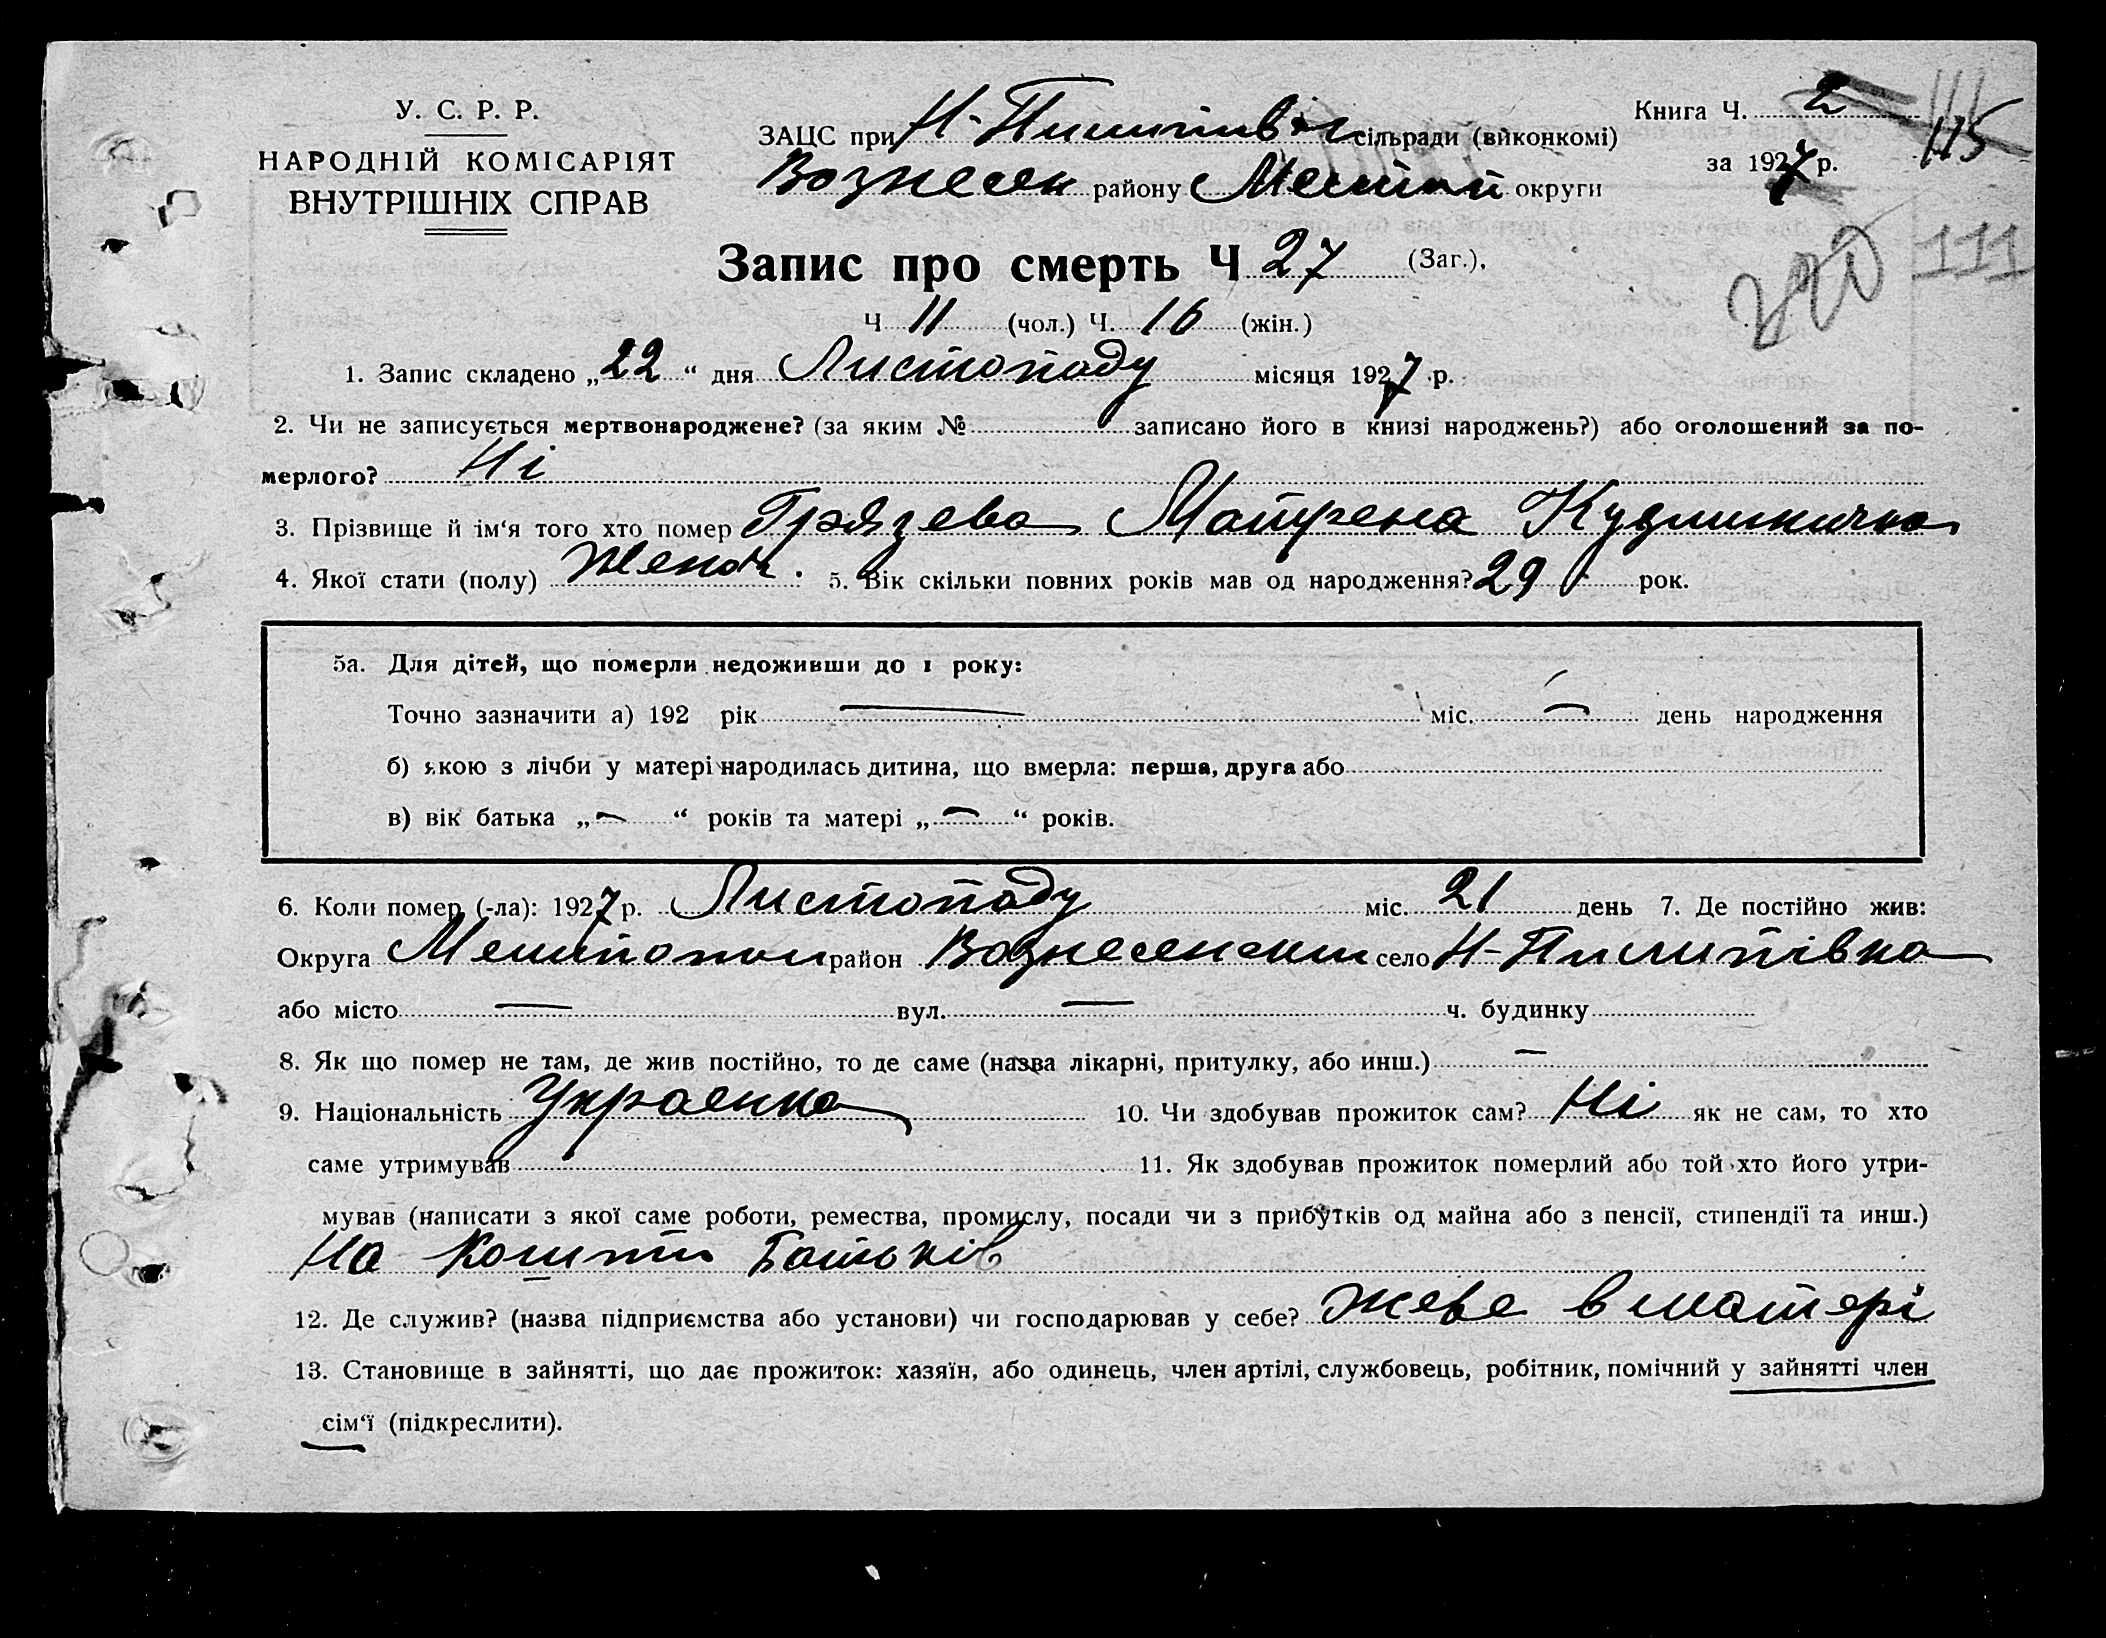 У. С. Р. Р.
НАРОДНІЙ КОМІСАРІЯТ
ВНУТРІШНІХ СПРАВ
ЗАЦС при Н-Пилипів сільради (виконкомі)
Вознесен району Мелітоп округи
Книга Ч. 2
за 1927 р.
115
111
Запис про смерть Ч 27 (Заг.),
Ч 11 (чол.) Ч. 16 (жін.)
1. Запис складено „22“ дня Листопаду місяця 1927 р.
2. Чи не записується мертвонароджене? (за яким № записано його в книзі народжень?) або оголошений за по-
мерлого? Ні
3. Прізвище й ім'я того хто помер Грязева Матрена
4. Якої стати (полу) Женоч. 5. Вік скільки повних років мав од народження? 29 рок.
5а. Для дітей, що померли недоживши до 1 року:
Точно зазначити а) 192 рік — міс. — день народження
б) якою з лічби у матері народилась дитина, що вмерла: перша, друга або
в) вік батька „—“ років та матері „—“ років.
6. Коли помер (-ла): 1927 р. Листопаду міс. 21 день 7. Де постійно жив:
Округа Мелитопол район Вознесенський село Н-Пилипівка
або місто — вул. — ч. будинку
8. Як що помер не там, де жив постійно, то де саме (назва лікарні, притулку, або инш.) —
9. Національність Украенка 10. Чи здобував прожиток сам? Ні як не сам, то хто
саме утримував 11. Як здобував прожиток померлий або той хто його утри-
мував (написати з якої саме роботи, ремества, промислу, посади чи з прибутків од майна або з пенсії, стипендії та инш.)
На кошти батьків
12. Де служив? (назва підприємства або установи) чи господарював у себе? Жеве в матері
13. Становище в зайнятті, що дає прожиток: хазяїн, або одинець, член артілі, службовець, робітник, помічний у зайнятті член
сім'ї (підкреслити).